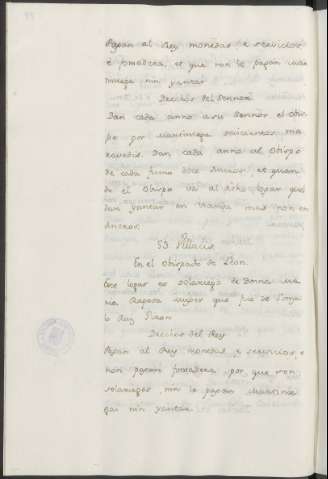 Pagan al Rey monedas, e servicios
e fonsadera, et que non le pagan mar
tiniega nin yantar
Derechos del Sennor
Dan cada anno a su Sennor el Obis
po por martiniega seiscientos ma
ravedis. Dan cada anno al Obispo
de cada fumo doce dineros, et quan
do el Obispo va al dicho logar que
dan yantar en vianda mas non en
dineros.
53 Villacir
En el Obispado de Leon.
Este logar es solariego de Donna Ma
ria muger que fue de Gonza
lo Ruy Giron
Derechos del Rey
Pagan al Rey monedas, e servicios, e
non pagan fonsadera, por que son
solariegos, nin le pagan martinie
ga, nin yantar